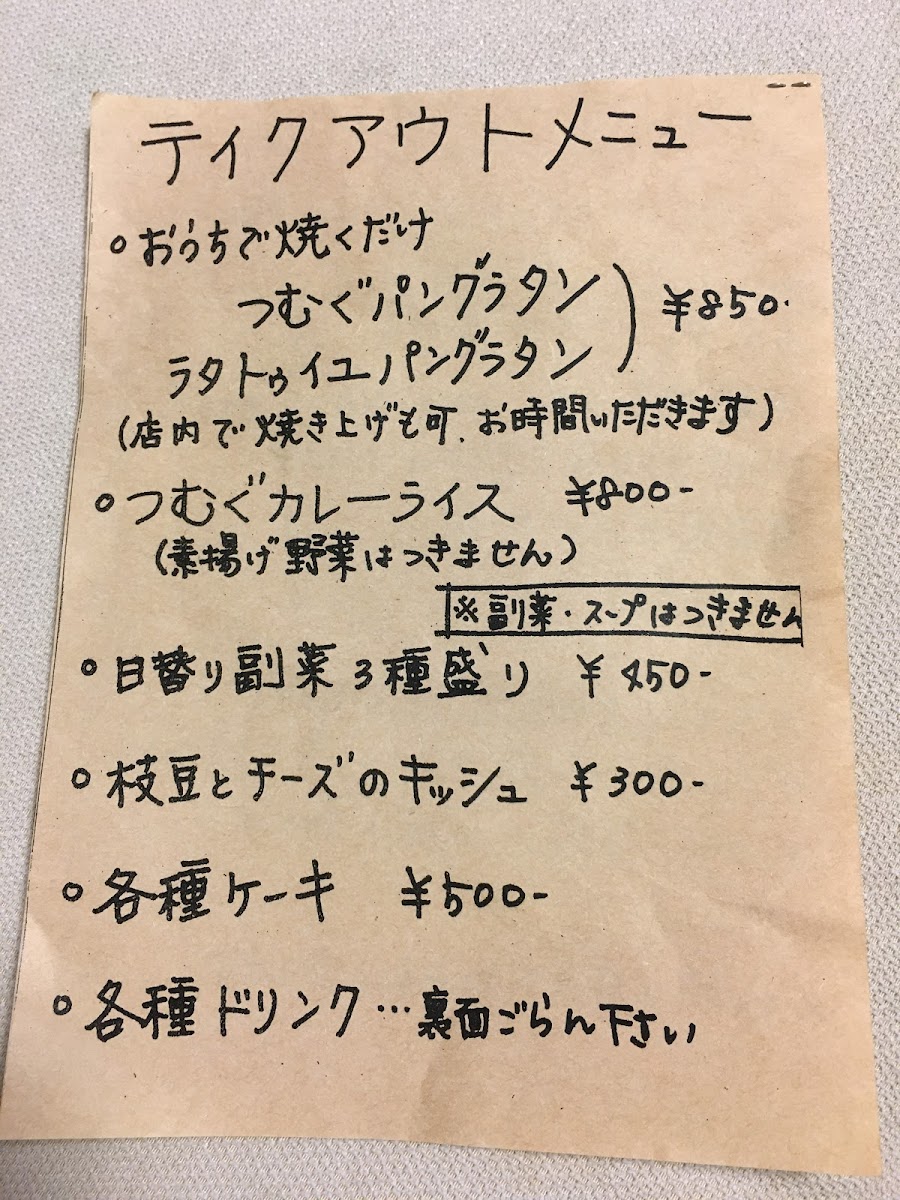 テイクアウトメニュー
○おうちで焼くだけ
つむぐパングラタン
ラタトゥイユパングラタン ) ¥850-
(店内で焼き上げも可、お時間いただきます)
○つむぐカレーライス ¥800-
(素揚げ野菜はつきません)
※副菜・スープはつきません
○日替り副菜3種盛り ¥450-
○枝豆とチーズのキッシュ ¥300-
○各種ケーキ ¥500-
○各種ドリンク…裏面ごらん下さい